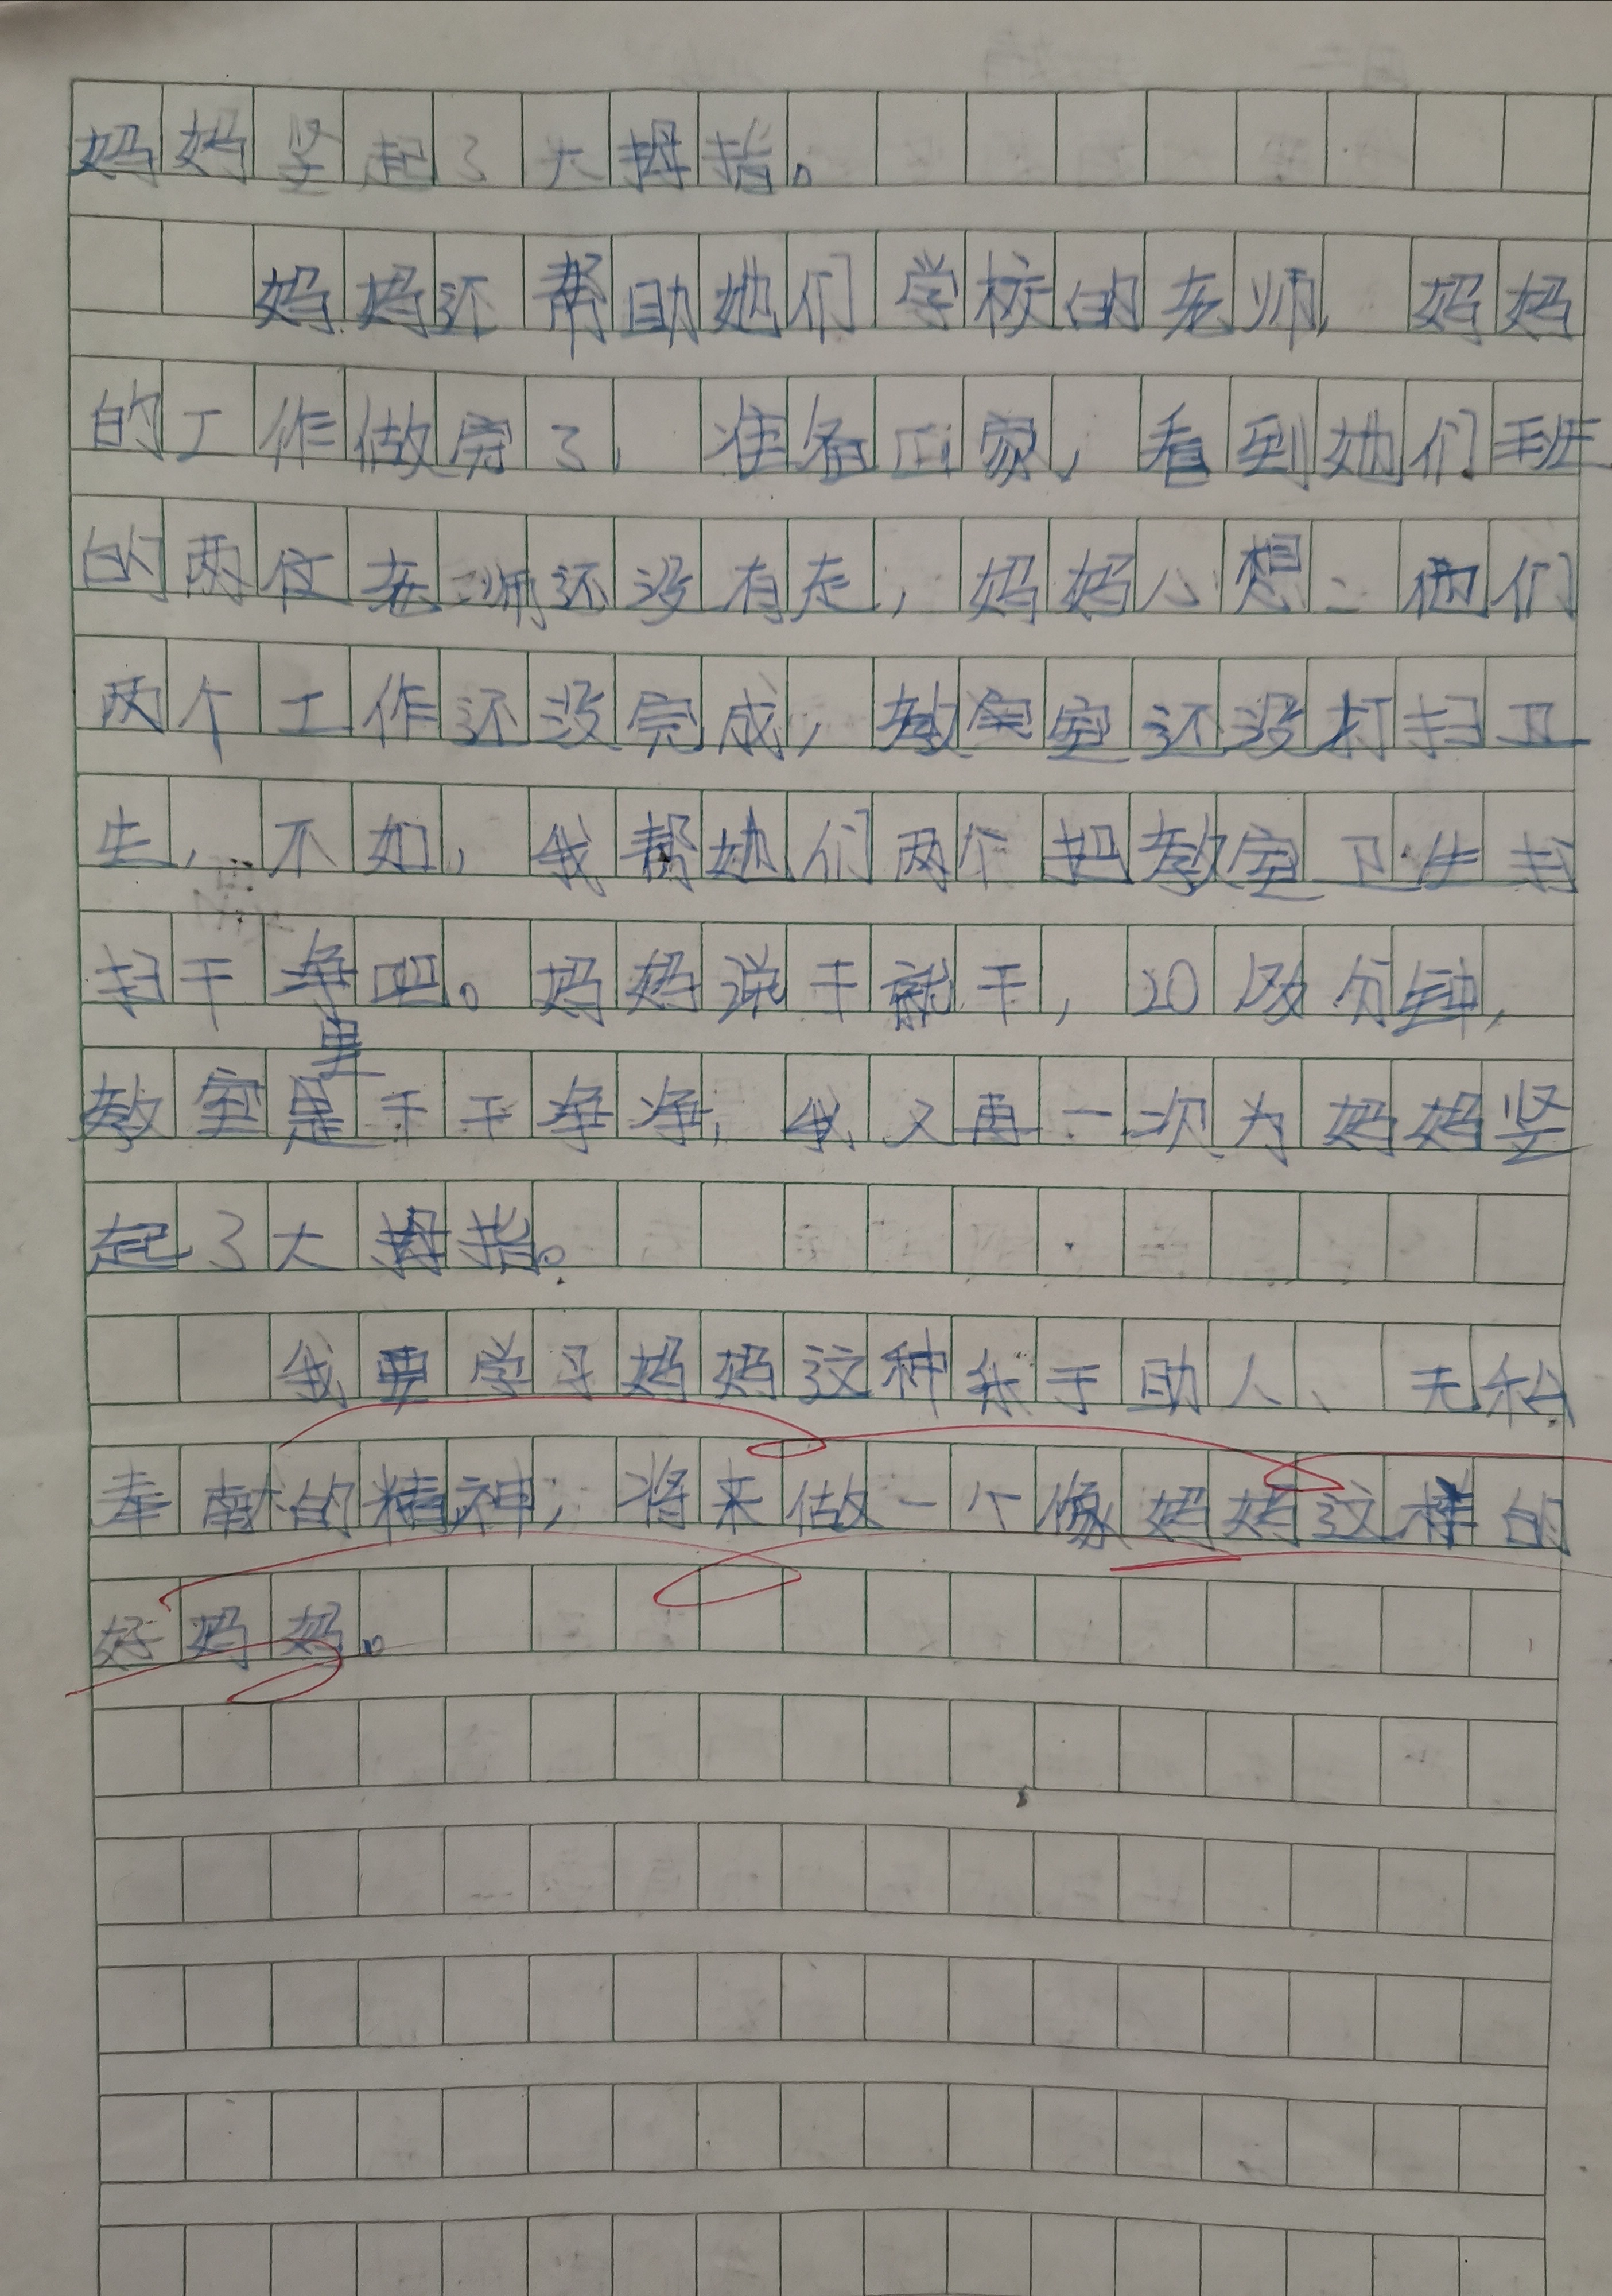 妈妈竖起了大拇指。
妈妈还帮助她们学校的老师,妈妈
的工作做完了,准备回家,看到她们班
的两位老师还没有走,妈妈心想:他们
两个工作还没完成,教室还没打扫卫
生,不如,我帮她们两个把教室卫生打
扫干净吧。妈妈说干就干,20分钟,
教室里干干净净,我又再一次为妈妈竖
起了大拇指。
我要学习妈妈这种乐于助人、无私
奉献的精神,将来做一个像妈妈这样的
好妈妈。